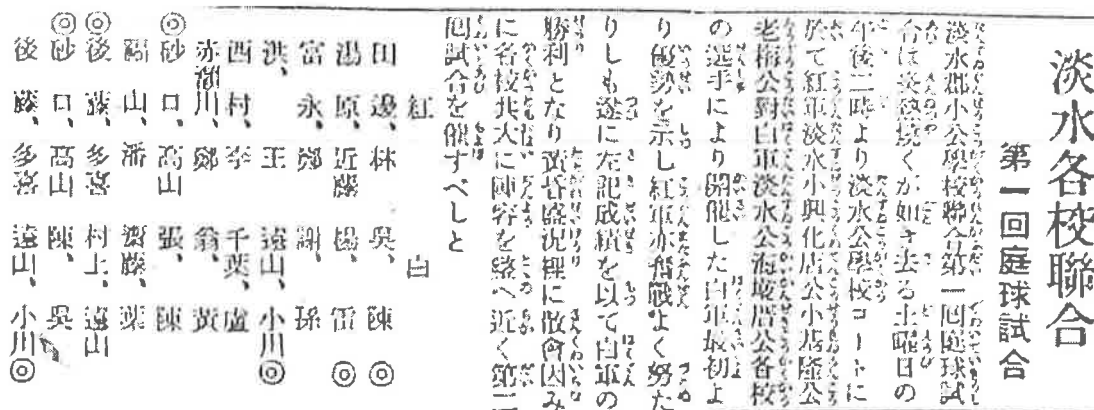 淡水各校聯合
第一回庭球試合
淡水郡小公學校聯合第一回庭球試
合は炎熱燒くが如き去る土曜日の
午後二時より淡水公學校コートに
於て紅軍淡水小興化店公小基隆公
老梅公對白軍淡水公海墘厝公各校
の選手により開催した白軍最初よ
り優勢を示し紅軍亦奮戰よく努た
りしも遂に左記成績を以て白軍の
勝利となり黃昏盛況裡に散會因み
に各校共大に陣容を整へ近く第二
回試合を催すべしと
紅 白
田邊、林 吳、陳◎
湯原、近藤 楊、雷◎
富永、鄭 謝、孫
洪、王 遠山、小川◎
西村、李 千葉、盧
赤瀨川、鄭 翁、黃
◎砂口、高山 張、陳
陽山、潘 齋藤、葉
◎後藤、多喜 村上、遠山
◎砂口、高山 陳、吳
後藤、多喜 遠山、小川◎